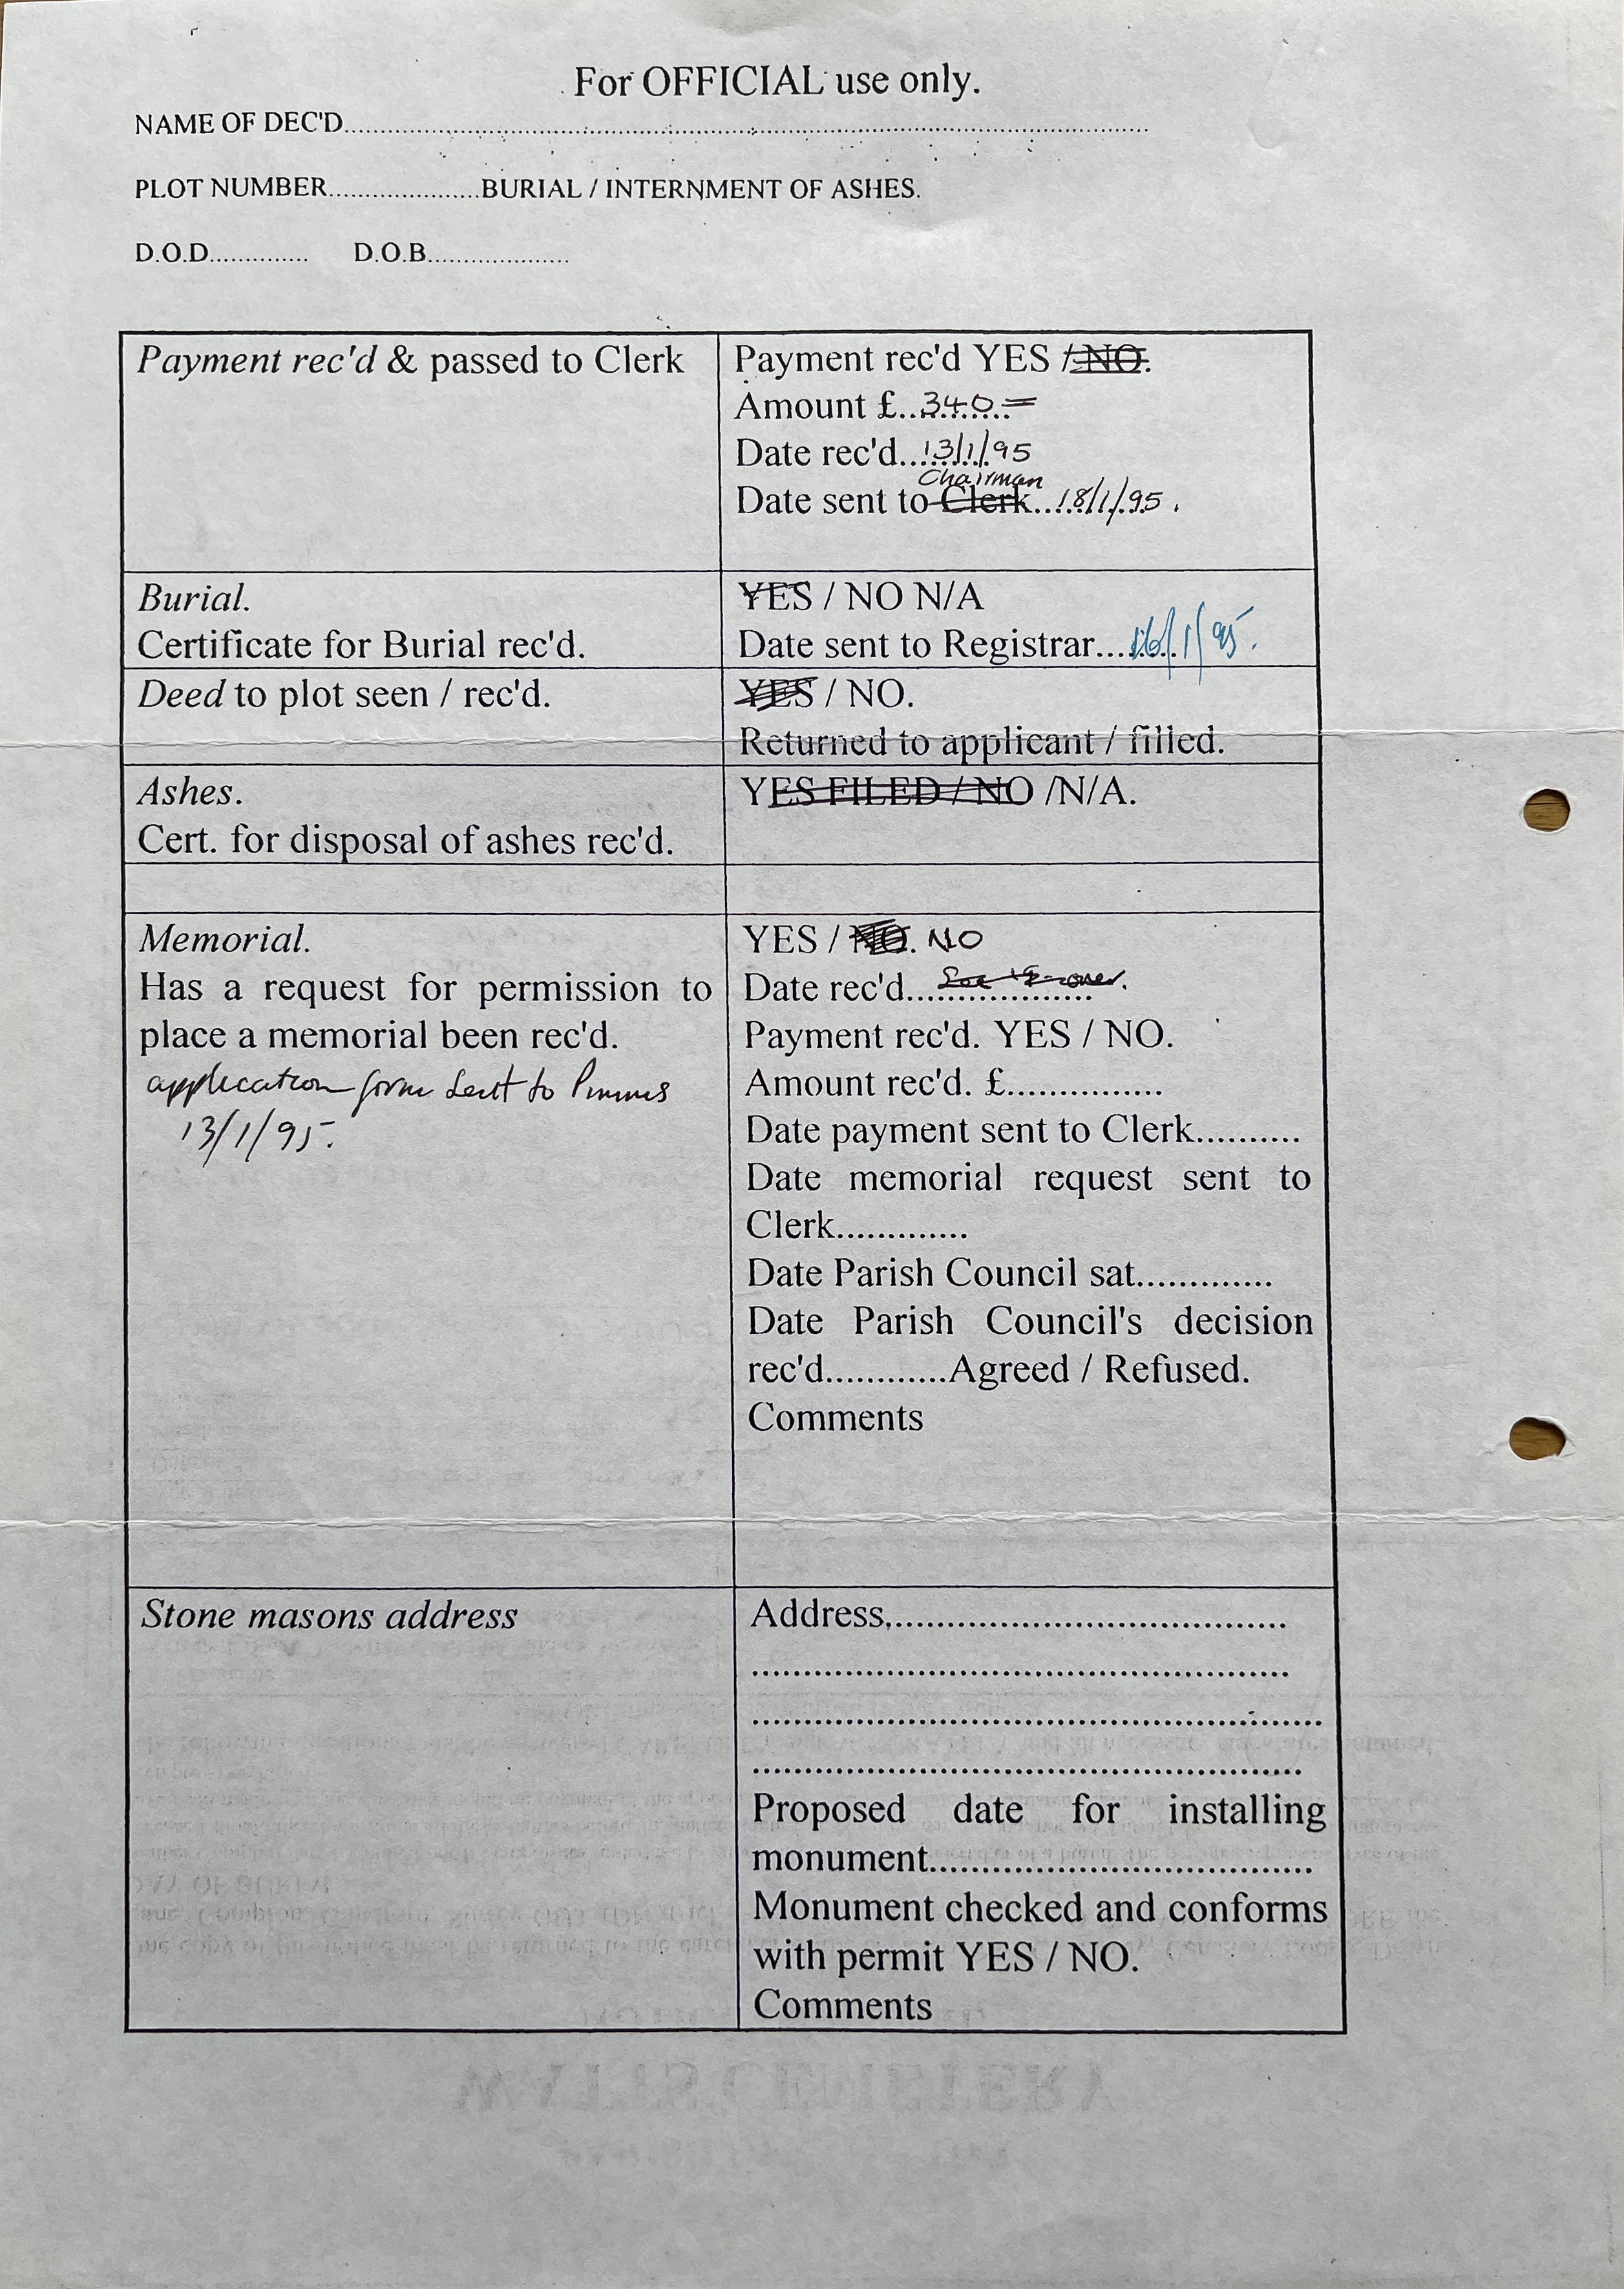 For OFFICIAL use only.
NAME OF DEC'D........................................................................
PLOT NUMBER......................BURIAL / INTERNMENT OF ASHES.
D.O.D.............. D.O.B....................
Payment rec'd & passed to Clerk
Payment rec'd YES / NO.
Amount £..340.=
Date rec'd...13/1/95
Chairman
Date sent to Clerk....18/1/95.
Burial.
Certificate for Burial rec'd.
YES / NO N/A
Date sent to Registrar....16/1/95.
Deed to plot seen / rec'd.
YES / NO.
Returned to applicant / filled.
Ashes.
Cert. for disposal of ashes rec'd.
YES FILED / NO /N/A.
Memorial.
Has a request for permission to
place a memorial been rec'd.
application form sent to
13/1/95.
YES / NO. NO
Date rec'd...................
Payment rec'd. YES / NO.
Amount rec'd. £...............
Date payment sent to Clerk..........
Date memorial request sent to
Clerk.............
Date Parish Council sat.............
Date Parish Council's decision
rec'd............Agreed / Refused.
Comments
Stone masons address
Address.......................................
....................................................
.......................................................
.....................................................
Proposed date for installing
monument.....................................
Monument checked and conforms
with permit YES / NO.
Comments